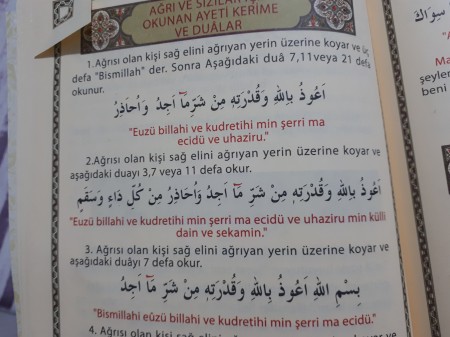 AĞRI VE SIZILAR İÇ
OKUNAN AYETİ KERİME
VE DUÂLAR
1. Ağrısı olan kişi sağ elini ağrıyan yerin üzerine koyar ve üç
defa "Bismillah" der. Sonra Aşağıdaki duâ 7,11veya 21 defa
okunur.
اَعُوذُ بِاللهِ وَقُدْرَتِهِ مِنْ شَرِّمَٓا اَجِدُ وَاُحَاذِرُ
"Euzü billahi ve kudretihi min şerri ma
ecidü ve uhaziru."
2.Ağrısı olan kişi sağ elini ağrıyan yerin üzerine koyar ve
aşağıdaki duayı 3,7 veya 11 defa okur.
اَعُوذُ بِاللهِ وَقُدْرَتِهِ مِنْ شَرِّ مَٓا اَجِدُ وَاُحَاذِرُ مِنْ كُلِّ دَاءٍ وَسَقَمٍ
"Euzü billahi ve kudretihi min şerri ma ecidü ve uhaziru min külli
dain ve sekamin."
3. Ağrısı olan kişi sağ elini ağrıyan yerin üzerine koyar ve
aşağıdaki duâyı 7 defa okur.
بِسْمِ اللهِ اَعُوذُ بِاللهِ وَقُدْرَتِهِ مِنْ شَرِّ مَٓا اَجِدُ
"Bismillahi eûzü billahi ve kudretihi min şerri ma ecidü."
4. Ağrısı olan kişi sağ elini ağrıyan
سِوَاكَ
Ma
şeyler
beni